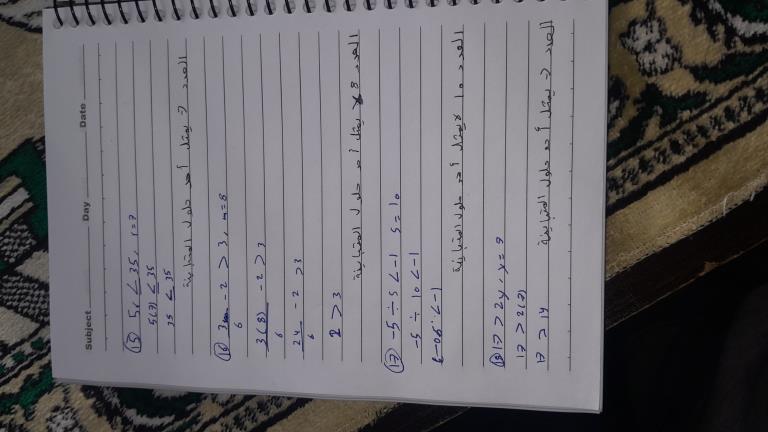 Subject Day Date
(15) 5r ≤ 35, r = 7
5(7) ≤ 35
35 ≤ 35
العدد 7 يمثل أحد حلول المتباينة
(16) 3m/6 - 2 > 3, m = 8
3(8)/6 - 2 > 3
24/6 - 2 > 3
2 > 3
العدد 8 لا يمثل أحد حلول المتباينة
(17) -5 ÷ s < -1 s = 10
-5 ÷ 10 < -1
-0.5 < -1
العدد 10 لا يمثل أحد حلول المتباينة
17 > 2y, y = 7
17 > 2(7)
17 > 14
العدد 7 يمثل أحد حلول المتباينة